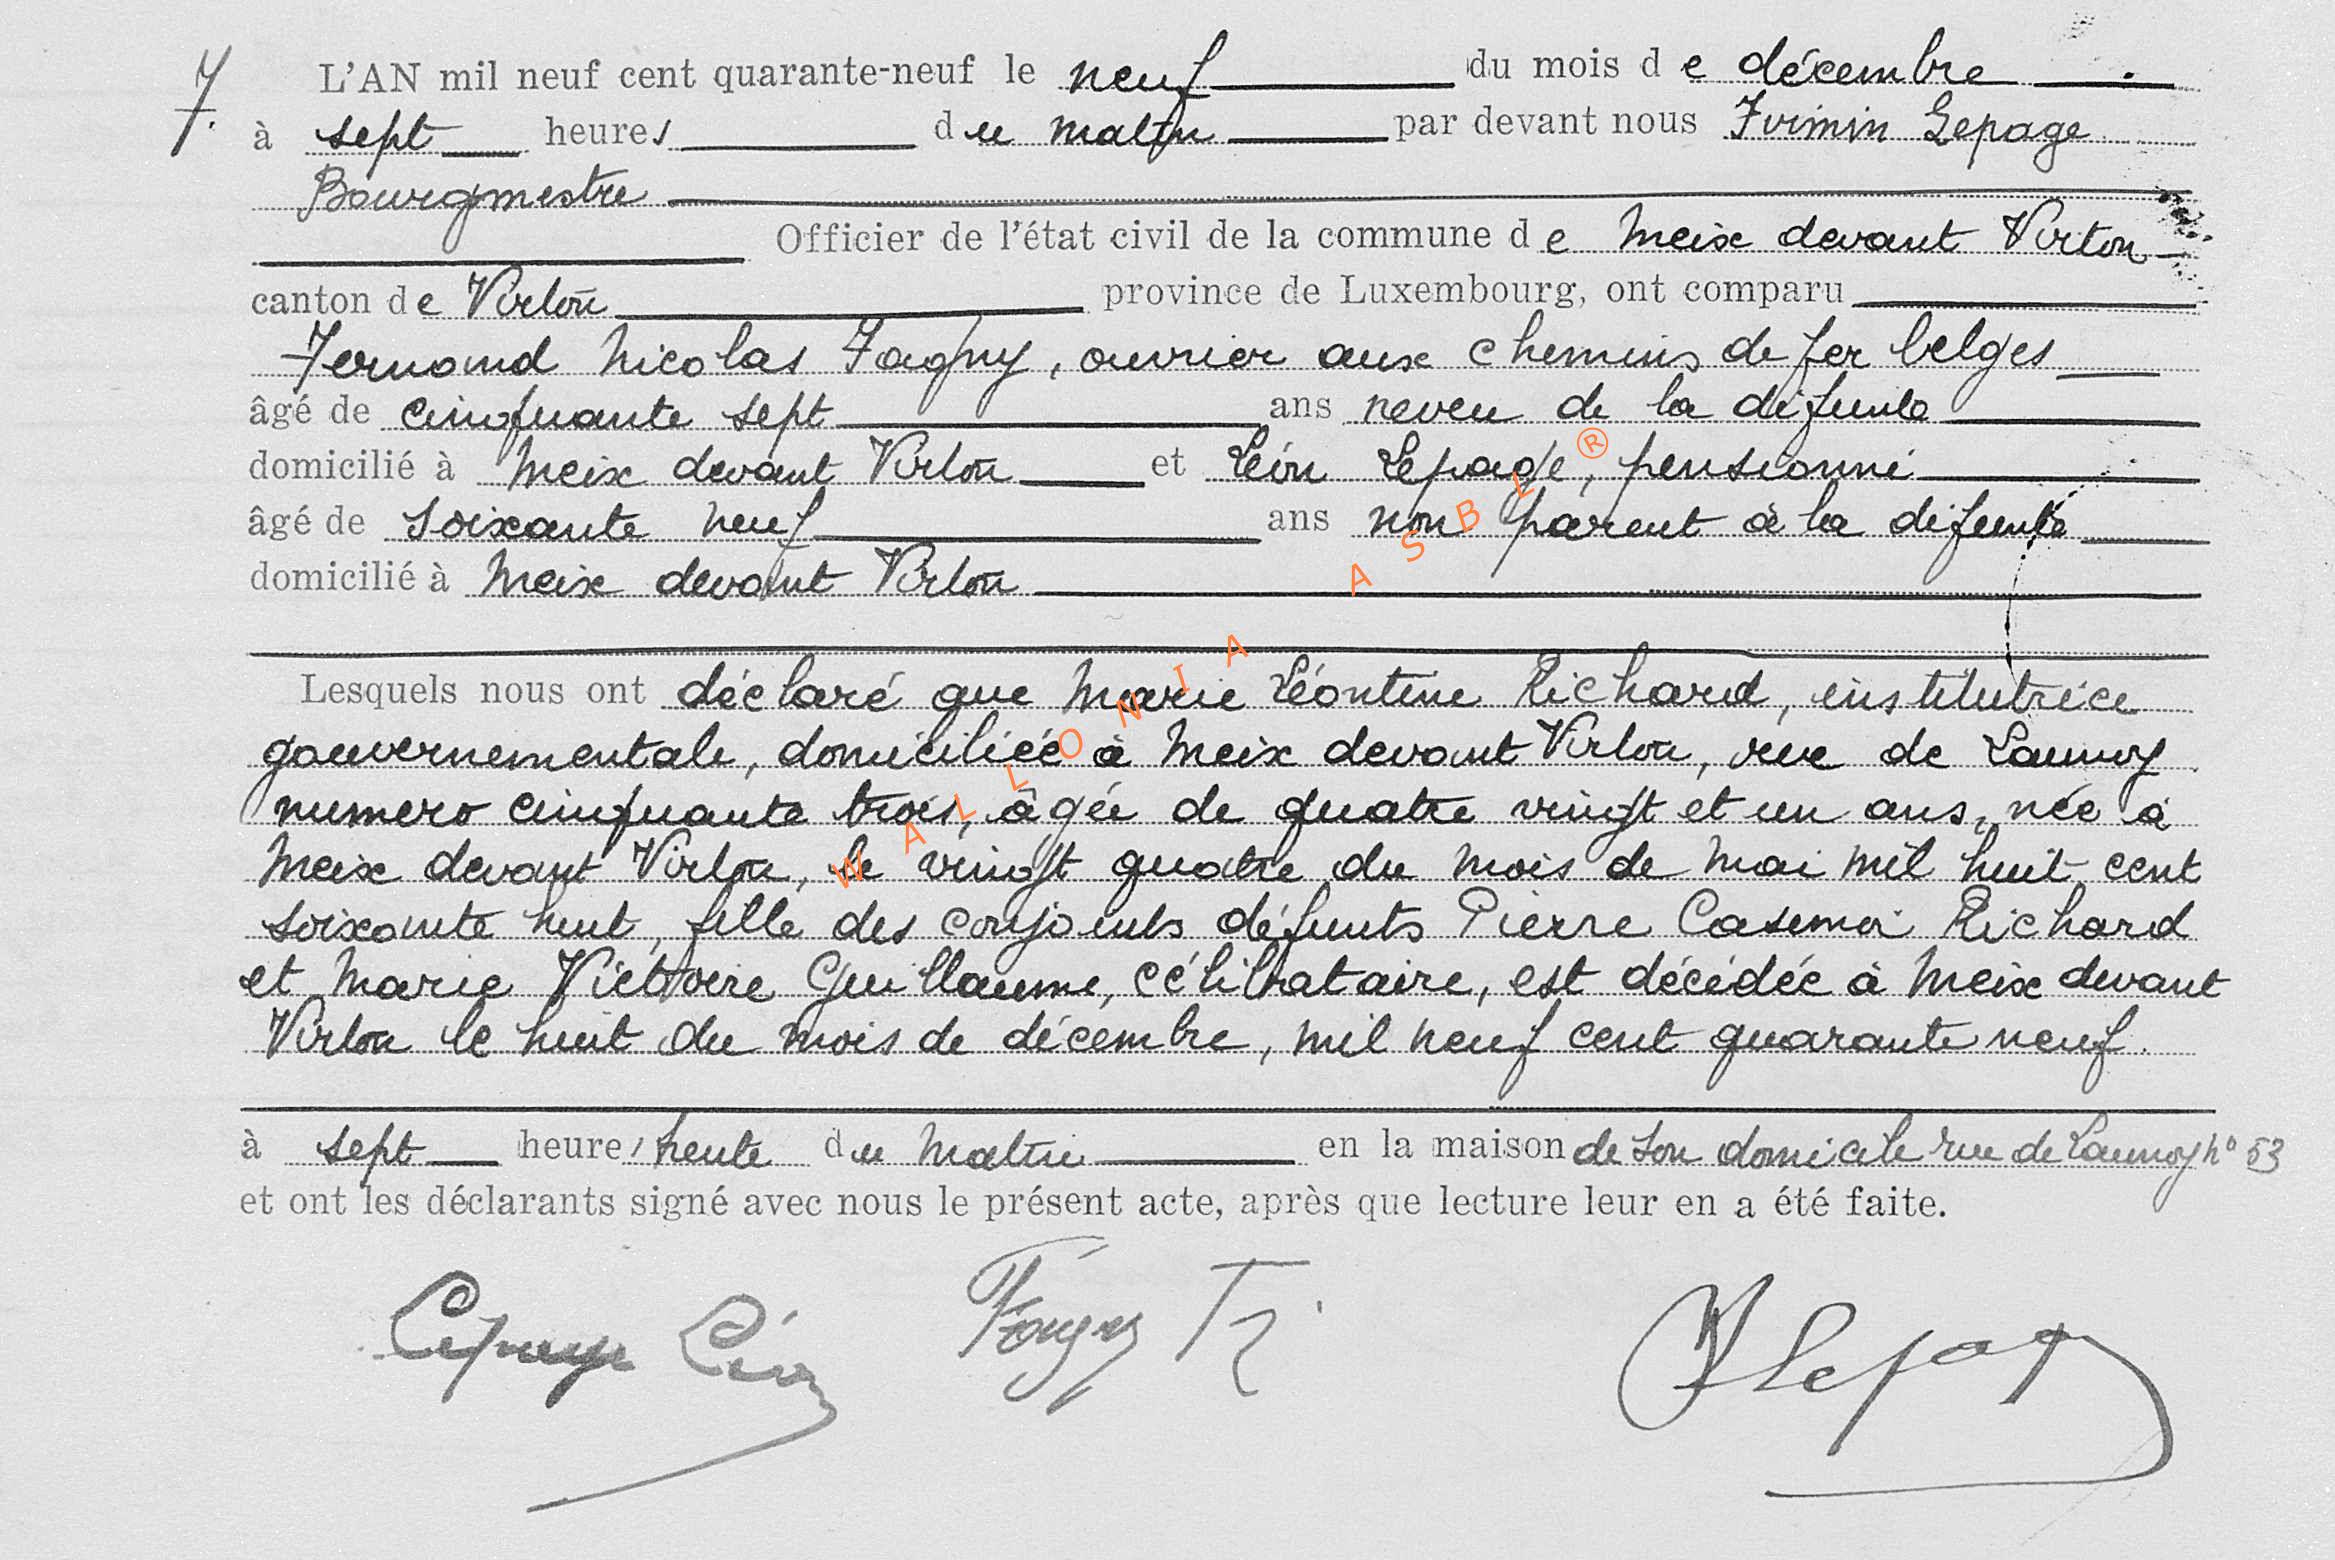 7. L'AN mil neuf cent quarante-neuf le neuf du mois de décembre
à sept heures du matin par devant nous Firmin Lepage
Bourgmestre
Officier de l'état civil de la commune de Meix devant Virton
canton de Virton province de Luxembourg, ont comparu
Fernand Nicolas Fagny, ouvrier aux chemins de fer belges
âgé de cinquante sept ans neveu de la défunte
domicilié à Meix devant Virton et Léon Lepage, pensionné
âgé de soixante neuf ans non parent à la défunte
domicilié à Meix devant Virton
Lesquels nous ont déclaré que Marie Léontine Richard, institutrice
gouvernementale, domiciliée à Meix devant Virton, rue de Launoy
numero cinquante trois, âgée de quatre vingt et un ans, née à
Meix devant Virton, le vingt quatre du mois de mai mil huit cent
soixante huit, fille des conjoints défunts Pierre Casimir Richard
et Marie Victoire Guillaume, célibataire, est décédée à Meix devant
Virton le huit du mois de décembre, mil neuf cent quarante neuf.
à sept heures trente du matin en la maison de son domicile rue de Launoy n° 53
et ont les déclarants signé avec nous le présent acte, après que lecture leur en a été faite.
Lepage Léon Fagny F. FLepage
WALLONIA ASBL ®